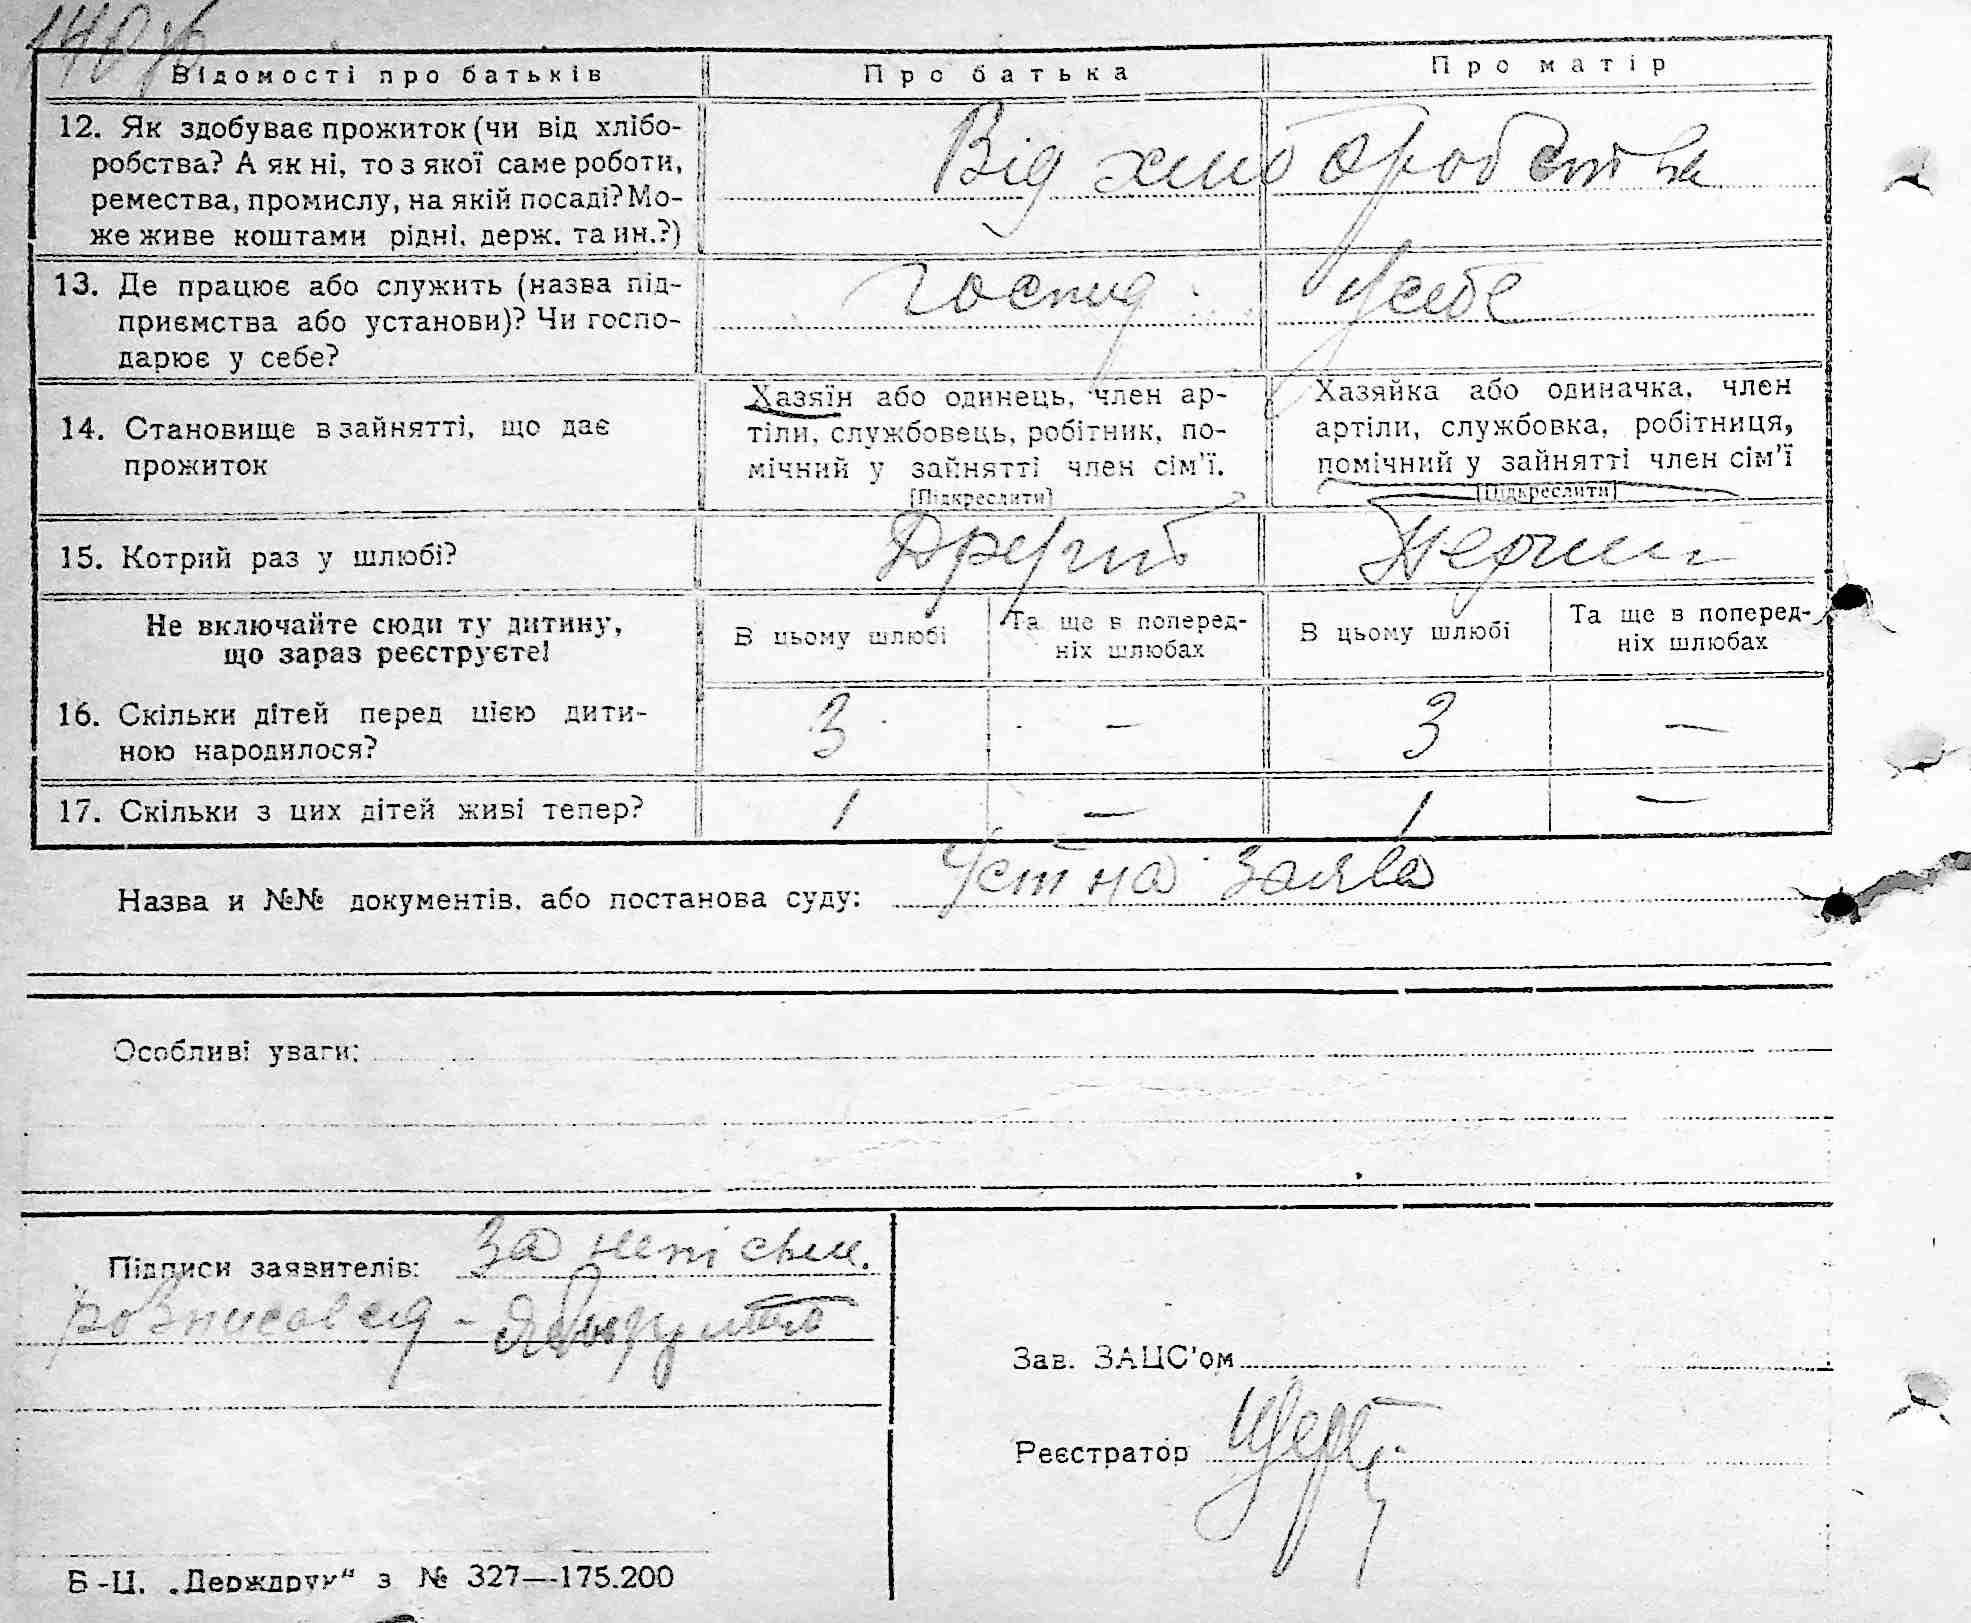 140 зв
Відомості про батьків
Про батька
Про матір
12. Як здобуває прожиток (чи від хлібо-
робства? А як ні, то з якої саме роботи,
ремества, промислу, на якій посаді? Мо-
же живе коштами рідні, держ. та ин.?)
Від хліборобства
13. Де працює або служить (назва під-
приємства або установи)? Чи госпо-
дарює у себе?
Господ. у себе
14. Становище в зайнятті, що дає
прожиток
Хазяїн або одинець, член ар-
тіли, службовець, робітник, по-
мічний у зайнятті член сім'ї.
[Підкреслити]
Хазяйка або одиначка, член
артіли, службовка, робітниця,
помічний у зайнятті член сім'ї
[Підкреслити]
15. Котрий раз у шлюбі?
Другий
Перший
Не включайте сюди ту дитину,
що зараз реєструєте!
В цьому шлюбі
Та ще в поперед-
ніх шлюбах
В цьому шлюбі
Та ще в поперед-
ніх шлюбах
16. Скільки дітей перед цією дити-
ною народилося?
3
—
3
—
17. Скільки з цих дітей живі тепер?
1
—
1
—
Назва и №№ документів, або постанова суду: Устна заява
Особливі уваги:
Підписи заявителів: За непісьм.
розписався -
Зав. ЗАЦС'ом
Реєстратор
Б-Ц. „Держдрук" з № 327—175.200